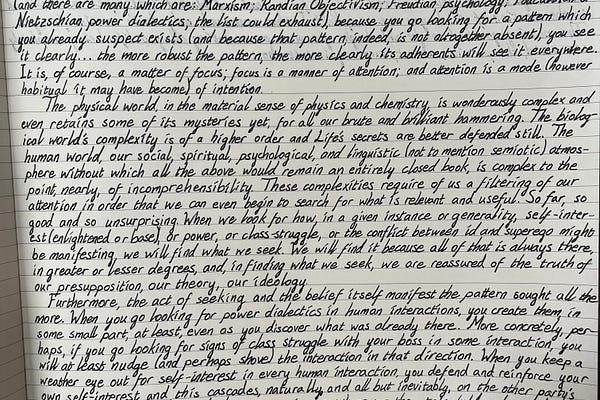 (and there are many which are: Marxism; Randian Objectivism; Freudian psychology;
Nietzschian power dialectics; the list could exhaust) because you go looking for a pattern which
you already suspect exists (and because that pattern, indeed, is not altogether absent), you see
it clearly... the more robust the pattern, the more clearly its adherents will see it everywhere.
It is, of course, a matter of focus; focus is a manner of attention; and attention is a mode (however
habitual it may have become) of intention.
The physical world, in the material sense of physics and chemistry, is wonderously complex and
even retains some of its mysteries yet, for all our brute and brilliant hammering. The biolog-
ical world's complexity is of a higher order and Life's secrets are better defended still. The
human world, our social, spiritual, psychological, and linguistic (not to mention semiotic) atmos-
phere without which all the above would remain an entirely closed book, is complex to the
point, nearly, of incomprehensibility. These complexities require of us a filtering of our
attention in order that we can even begin to search for what is relevant and useful. So far, so
good and so unsurprising. When we look for how, in a given instance or generality, self-inter-
est (enlightened or base), or power, or class-struggle, or the conflict between id and superego might
be manifesting, we will find what we seek. We will find it because all of that is always there,
in greater or lesser degrees, and, in finding what we seek, we are reassured of the truth of
our presupposition, our theory, our ideology.
Furthermore, the act of seeking and the belief itself manifest the pattern sought all the
more. When you go looking for power dialectics in human interactions, you create them, in
some small part, at least, even as you discover what was already there. More concretely, per-
haps, if you go looking for signs of class struggle with your boss in some interaction, you
will at least nudge (and perhaps shove) the interaction in that direction. When you keep a
weather eye out for self-interest in every human interaction, you defend and reinforce your
own self-interest and this cascades, naturally, and all but inevitably, on the other party's